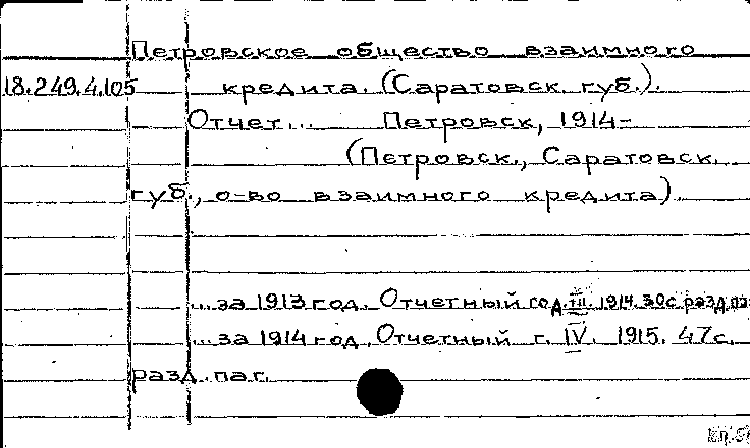 Петровское общество взаимного
18.249.4.105 кредита. (Саратовск. губ.).
Отчет... Петровск, 1914-
(Петровск., Саратовск.
губ., о-во взаимного кредита).
...за 1913 год. Отчетный год III. 1914. 30 с разд. па
...за 1914 год. Отчетный г. IV. 1915. 47 с.
разд. паг.